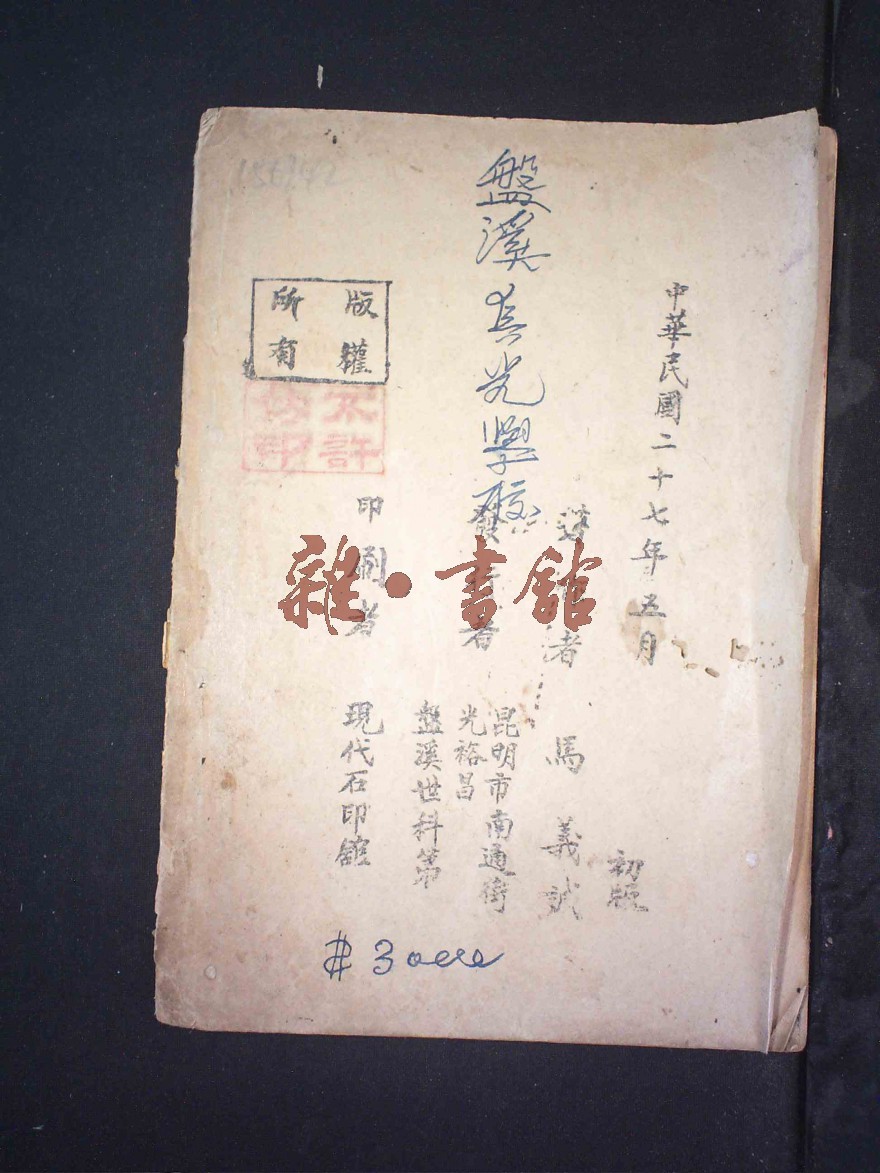 中華民國二十七年五月
初版
者 馬義誠
盤溪真光學校
發行者
昆明市南通街
光裕昌
盤溪世科第
印刷者 現代石印館
版權
所有
不許
翻印
雜·書舘